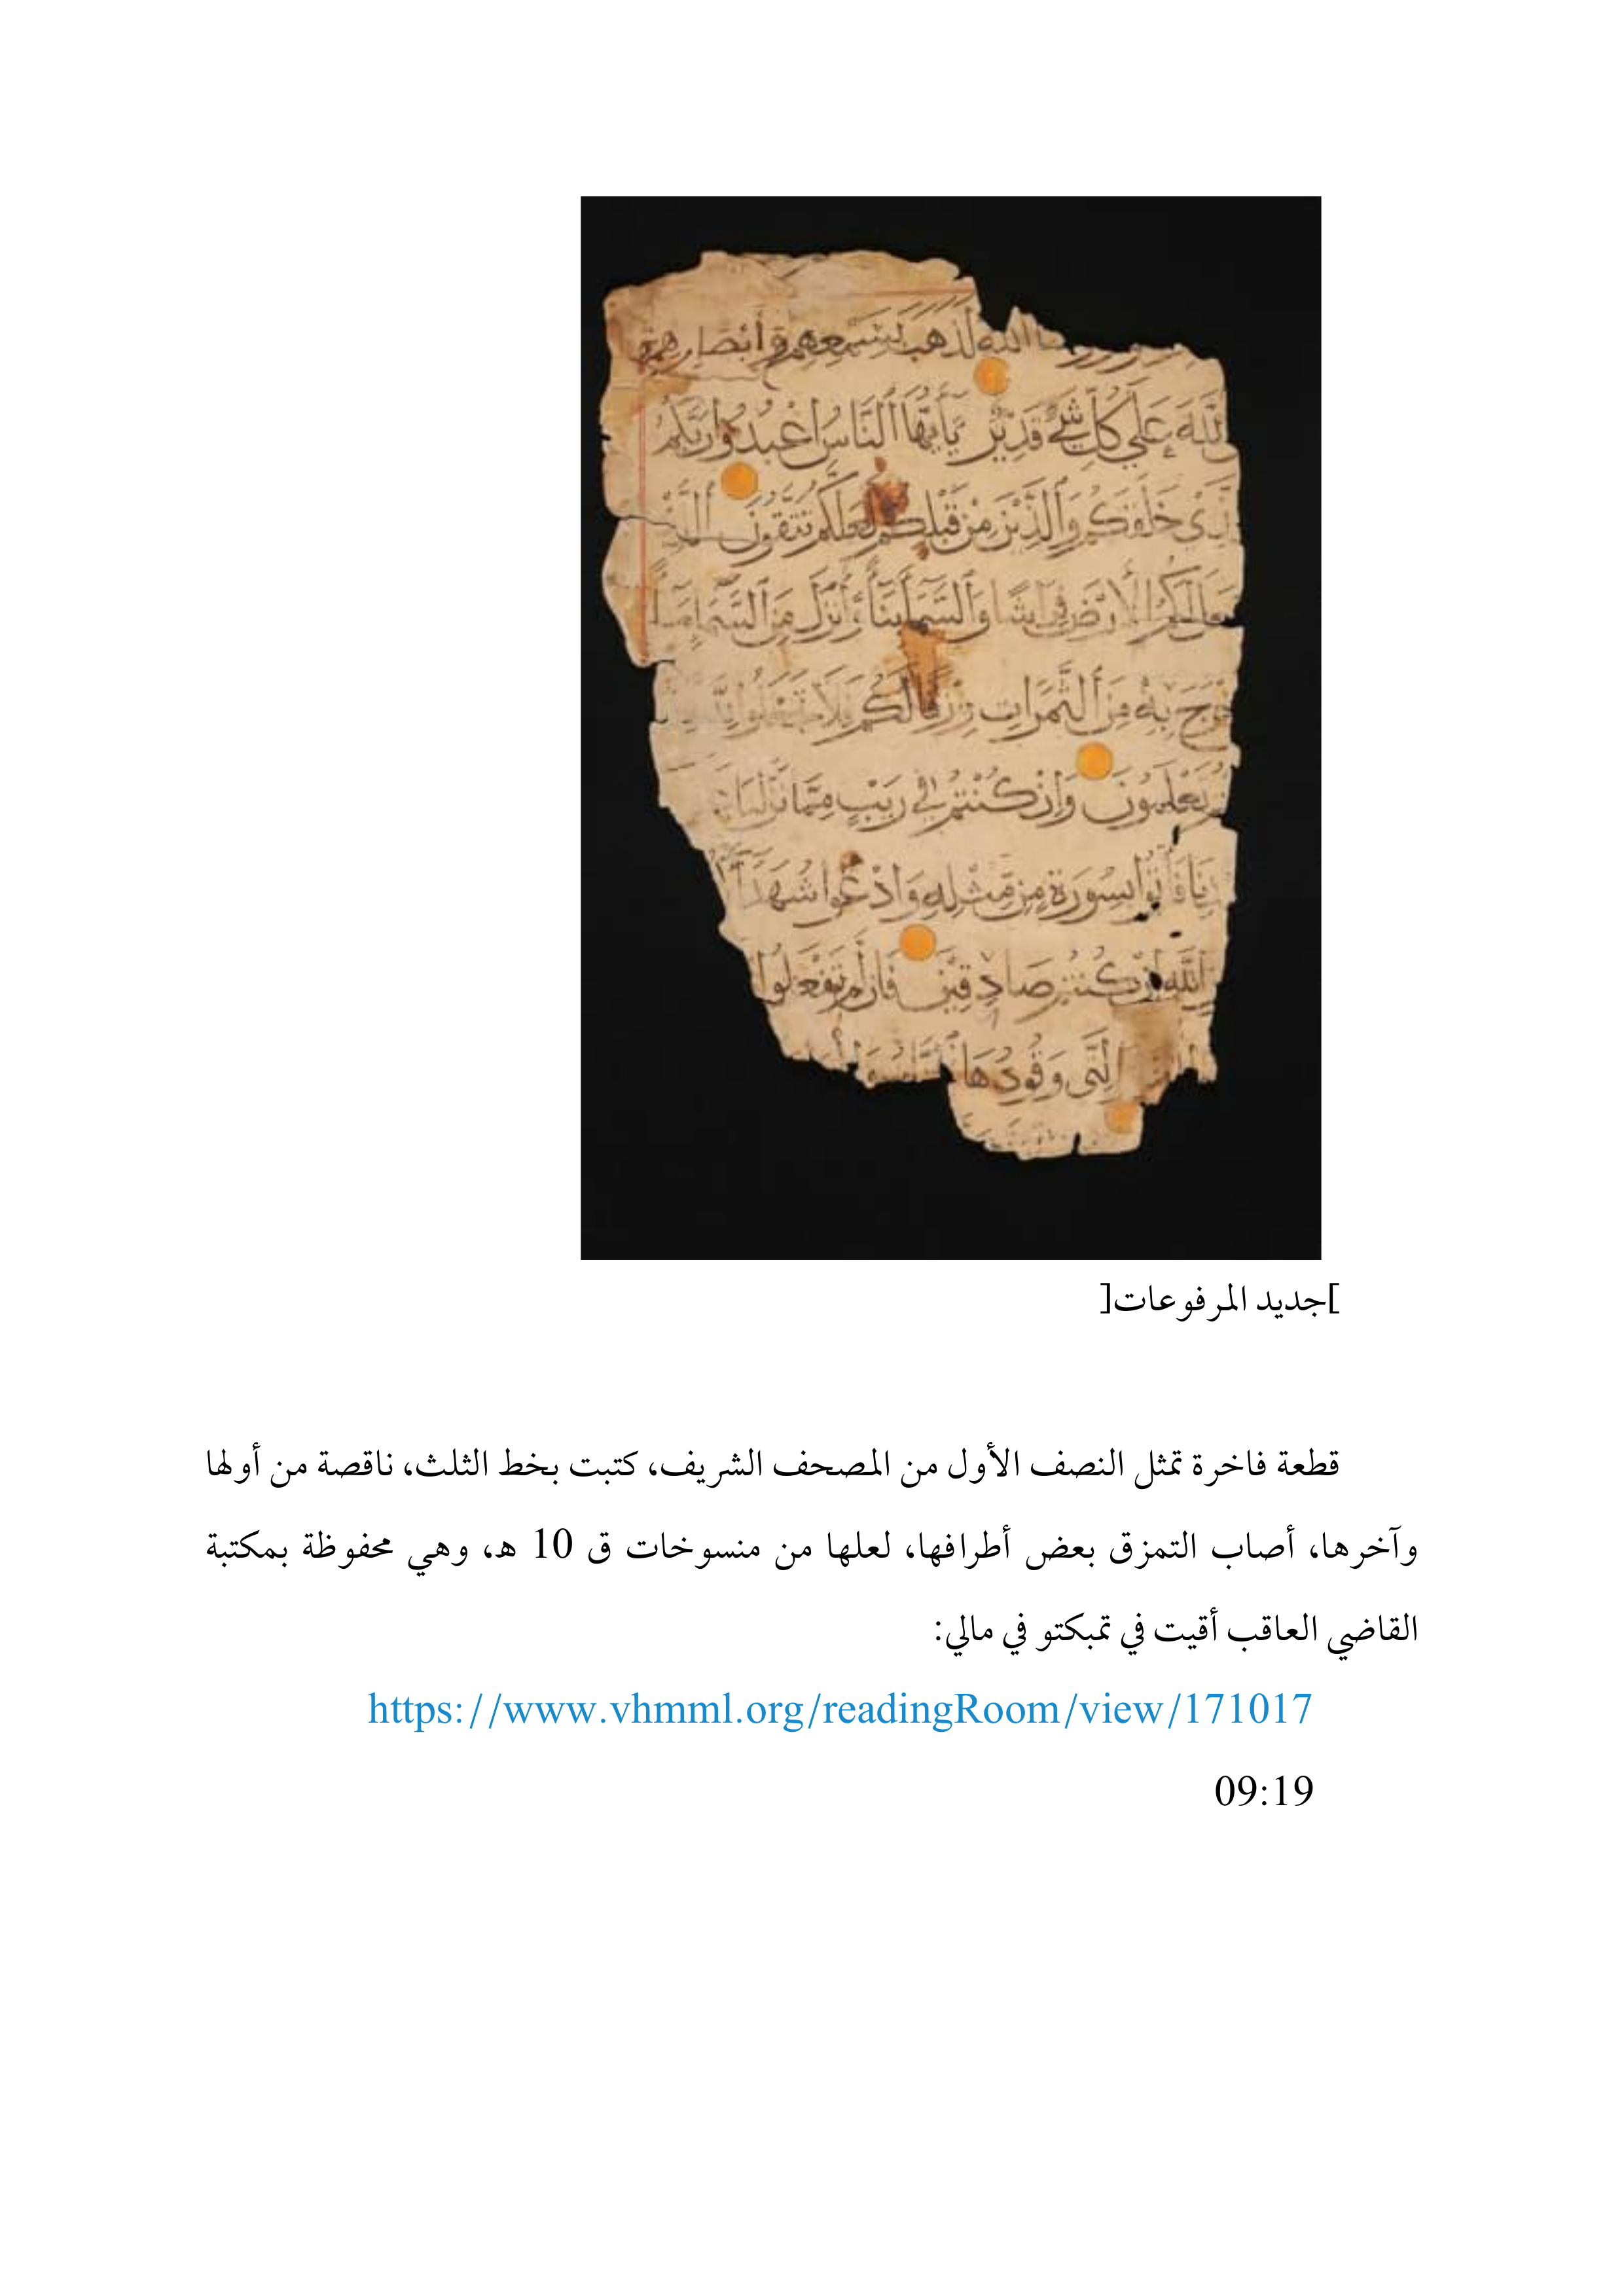 الله لذهب بسمعهم وأبصارهم
الله على كل شيء قدير يا أيها الناس اعبدوا ربكم
الذي خلقكم والذين من قبلكم لعلكم تتقون
لكم الأرض فراشا والسماء بناء وأنزل من السماء
به من الثمرات رزقا لكم فلا تجعلوا
تعلمون وإن كنتم في ريب مما نزلنا
فأتوا بسورة من مثله وادعوا
الله إن كنتم صادقين فإن لم تفعلوا
التي وقودها
]جديد المرفوعات[
قطعة فاخرة تمثل النصف الأول من المصحف الشريف، كتبت بخط الثلث، ناقصة من أولها
وآخرها، أصاب التمزق بعض أطرافها، لعلها من منسوخات ق 10 هـ، وهي محفوظة بمكتبة
القاضي العاقب أقيت في تمبكتو في مالي:
https://www.vhmml.org/readingRoom/view/171017
09:19